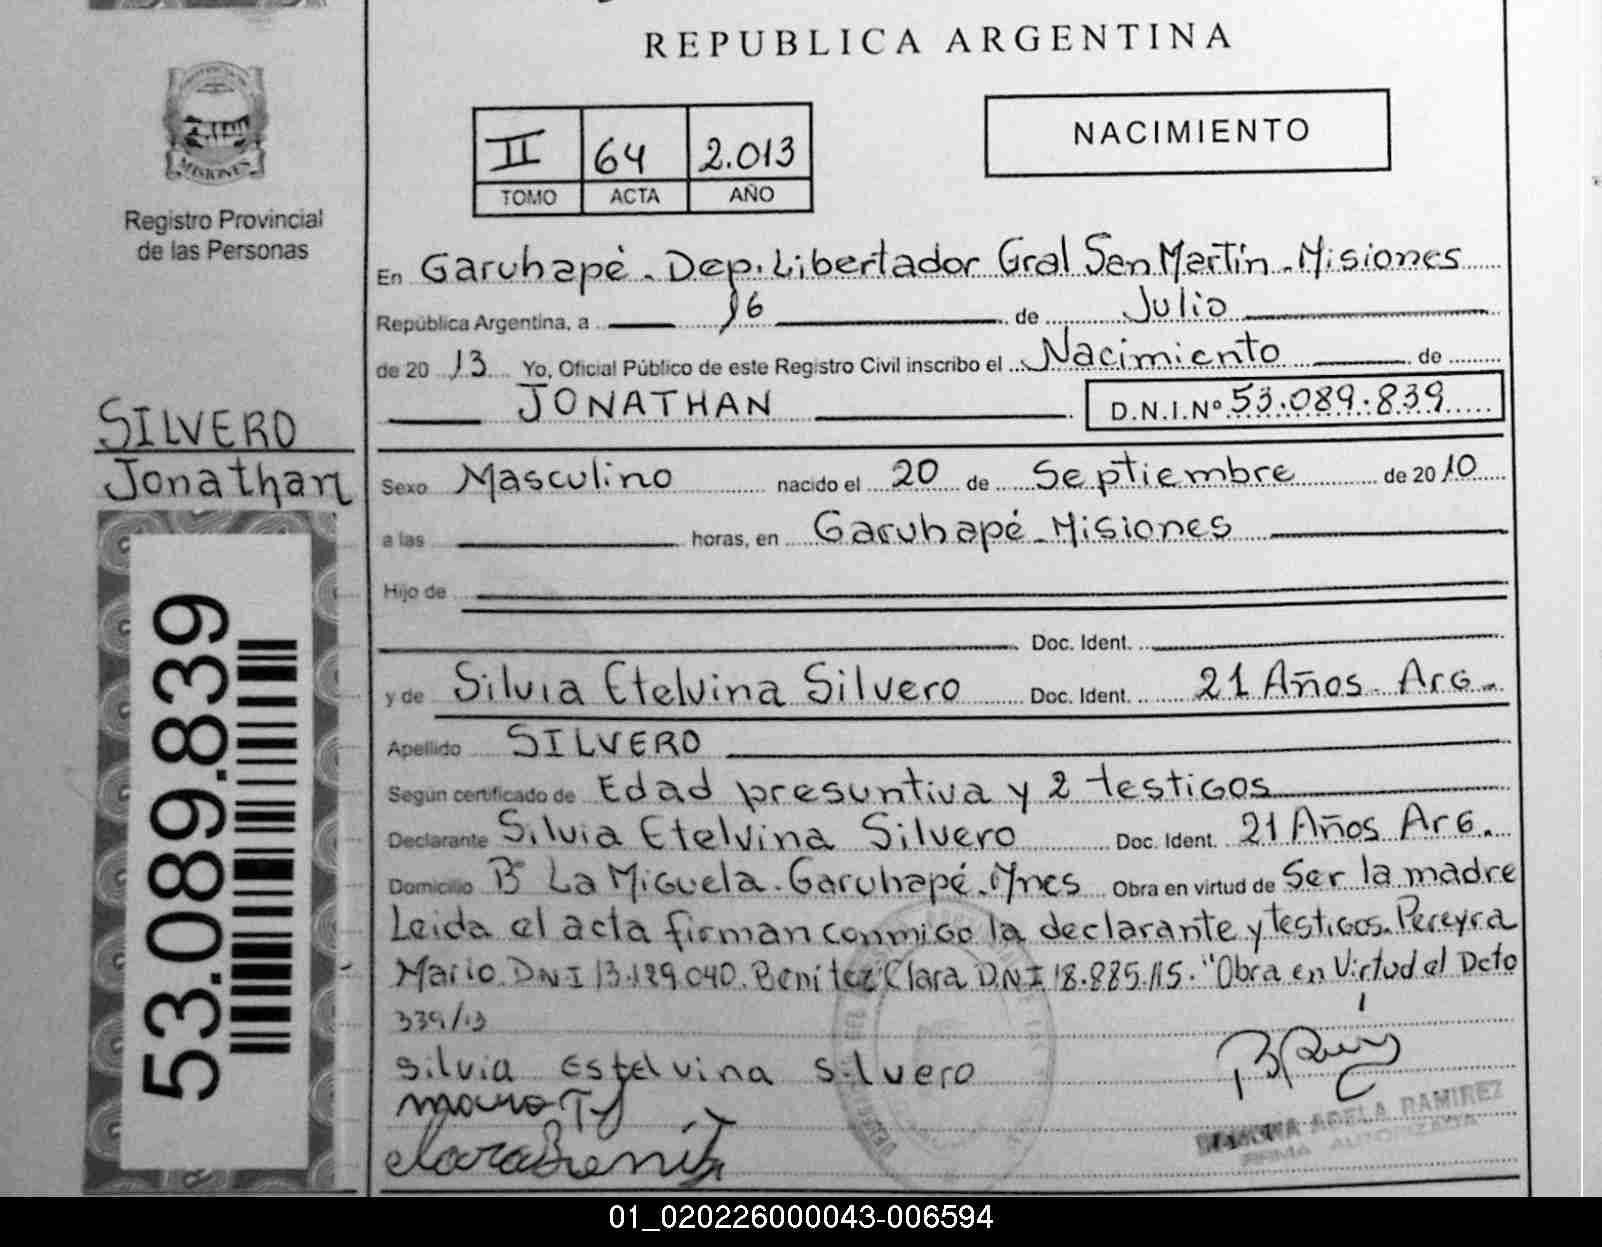 REPUBLICA ARGENTINA
MISIONES
Registro Provincial
de las Personas
II 64 2.013
TOMO ACTA AÑO
NACIMIENTO
En Garuhapé. Dep. Libertador Gral San Martín. Misiones
República Argentina, a 16 de Julio
de 2013 Yo, Oficial Público de este Registro Civil inscribo el Nacimiento de
JONATHAN D.N.I.Nº 53.089.839
SILVERO
Jonathan
Sexo Masculino nacido el 20 de Septiembre de 2010
a las horas, en Garuhapé Misiones
Hijo de
Doc. Ident.
y de Silvia Etelvina Silvero Doc. Ident. 21 Años. Arg.
Apellido SILVERO
Según certificado de Edad presuntiva y 2 testigos
Declarante Silvia Etelvina Silvero Doc. Ident. 21 Años Arg.
Domicilio Bº La Miguela. Garuhapé. Mnes Obra en virtud de Ser la madre
Leida el acta firman conmigo la declarante y testigos. Pereyra
Mario. DNI 13.129.040. Benítez Clara DNI 18.885.115. "Obra en Virtud al Dcto
339/13
Silvia Estelvina Silvero
Clara Benit
RAMONA ADELA RAMIREZ
FIRMA AUTORIZADA
53.089.839
01_020226000043-006594